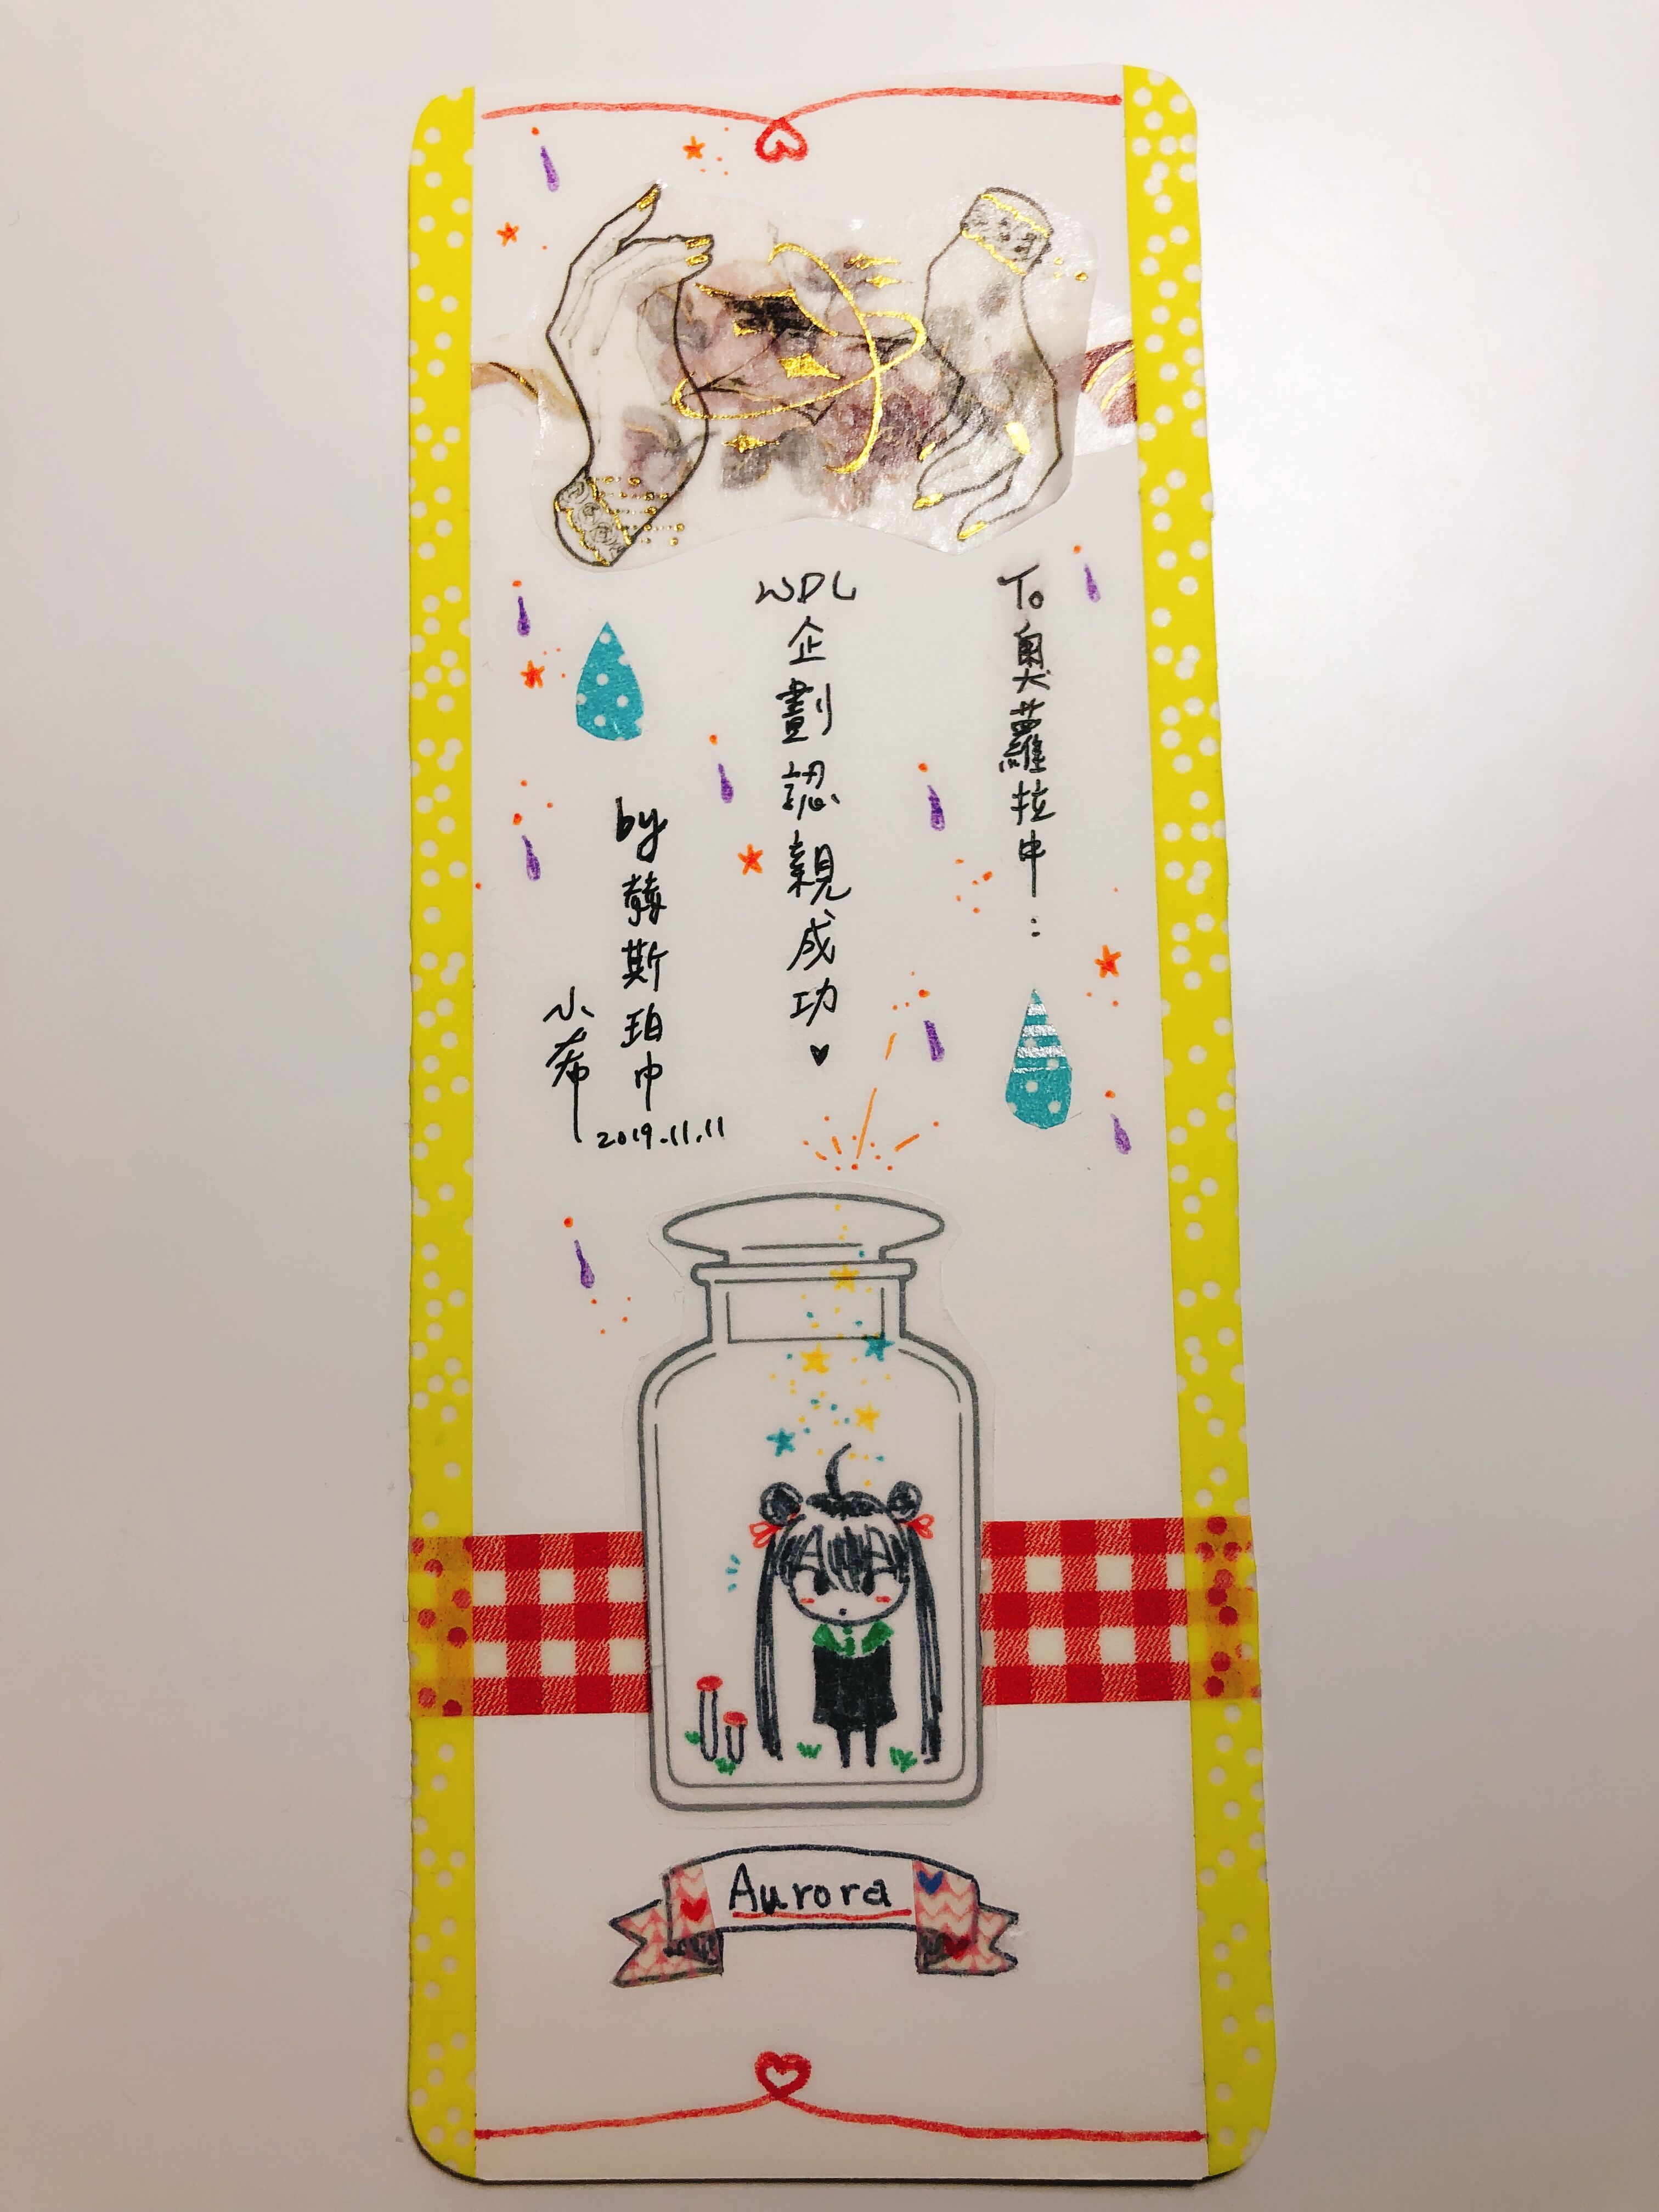 To奧蘿拉中:
WDL企劃認親成功♥
by赫斯珀中
小希
2019.11.11
Aurora